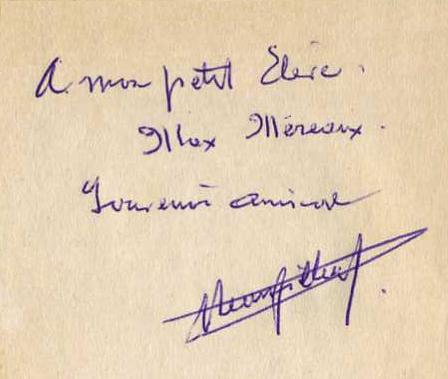 A mon petit Elève.
Max Méreaux.
Souvenir amical